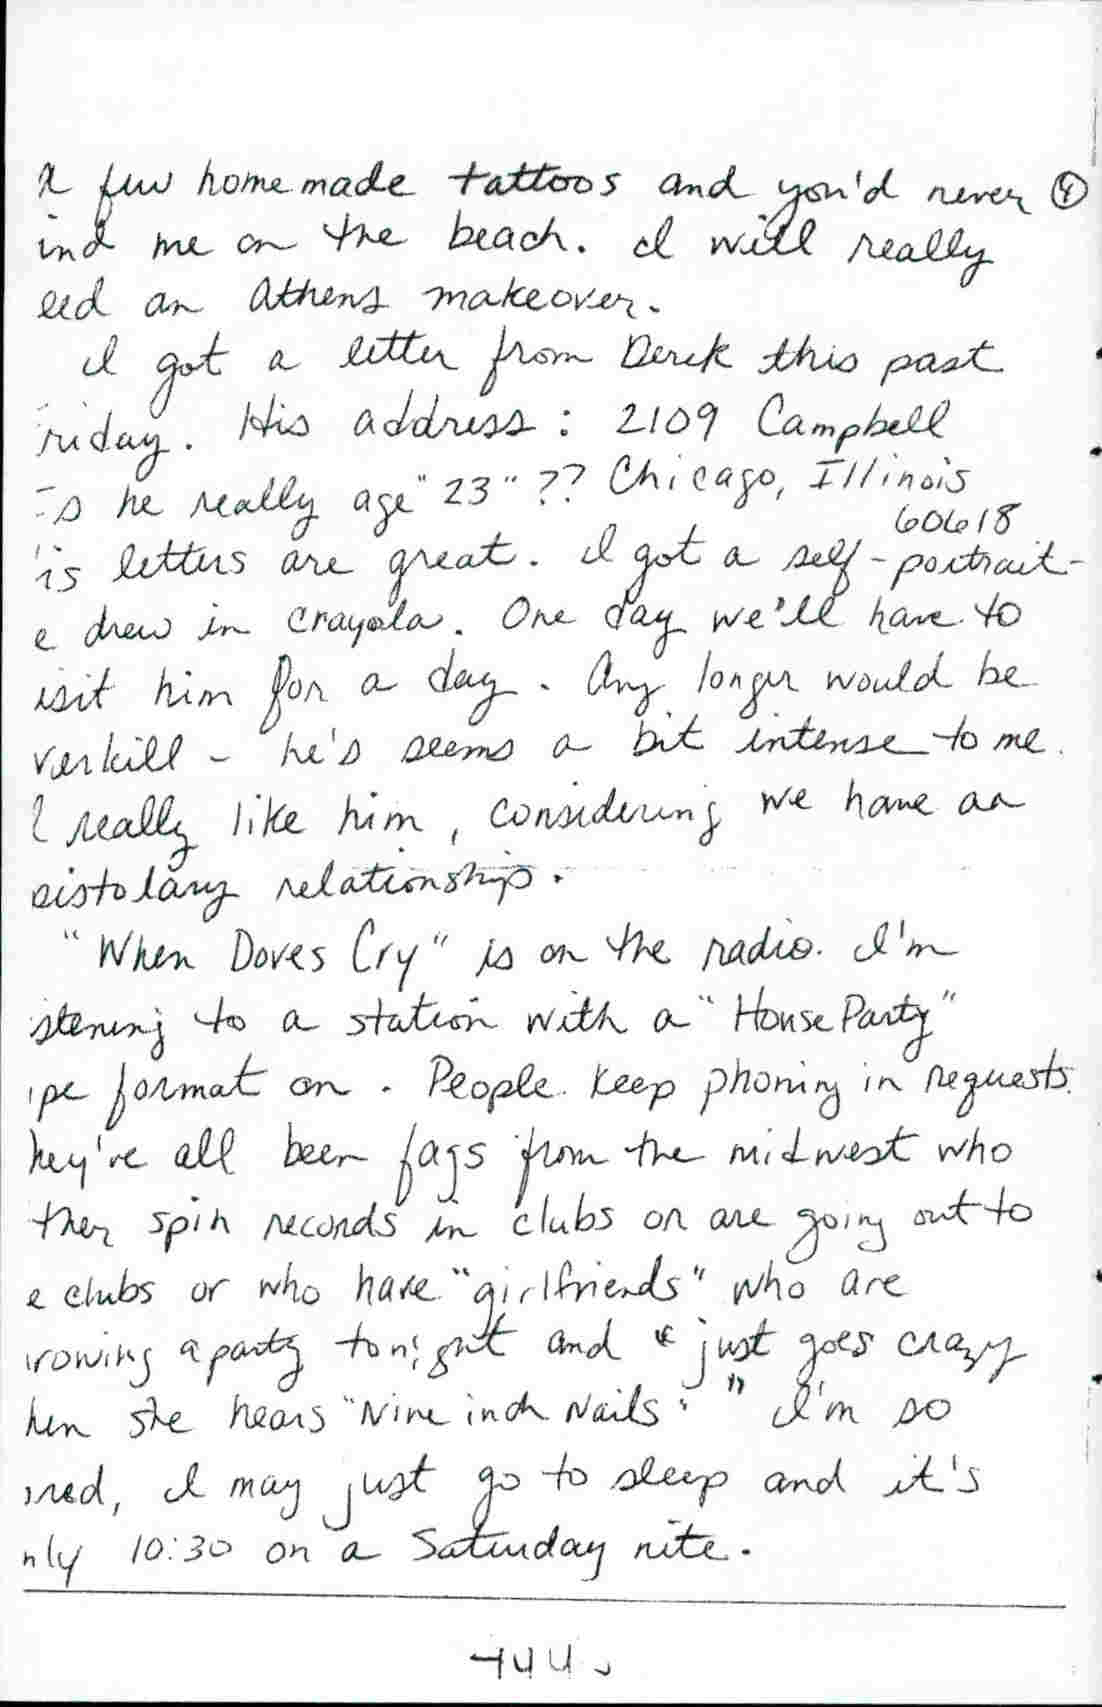 a few homemade tattoos and you'd never ④
ind me on the beach. I will really
eed an Athens makeover.
I got a letter from Derek this past
riday. His address: 2109 Campbell
s he really age "23"?? Chicago, Illinois
60618
is letters are great. I got a self-portrait-
e drew in crayola. One day we'll have to
isit him for a day. Any longer would be
verkill - he's seems a bit intense to me.
I really like him, considering we have an
pistolary relationship.
"When Doves Cry" is on the radio. I'm
istening to a station with a "House Party"
ype format on. People keep phoning in requests.
hey've all been fags from the midwest who
ther spin records in clubs or are going out to
e clubs or who have "girlfriends" who are
rowing a party tonight and "just goes crazy
hen she hears "Nine inch Nails"." I'm so
ired, I may just go to sleep and it's
nly 10:30 on a Saturday nite.